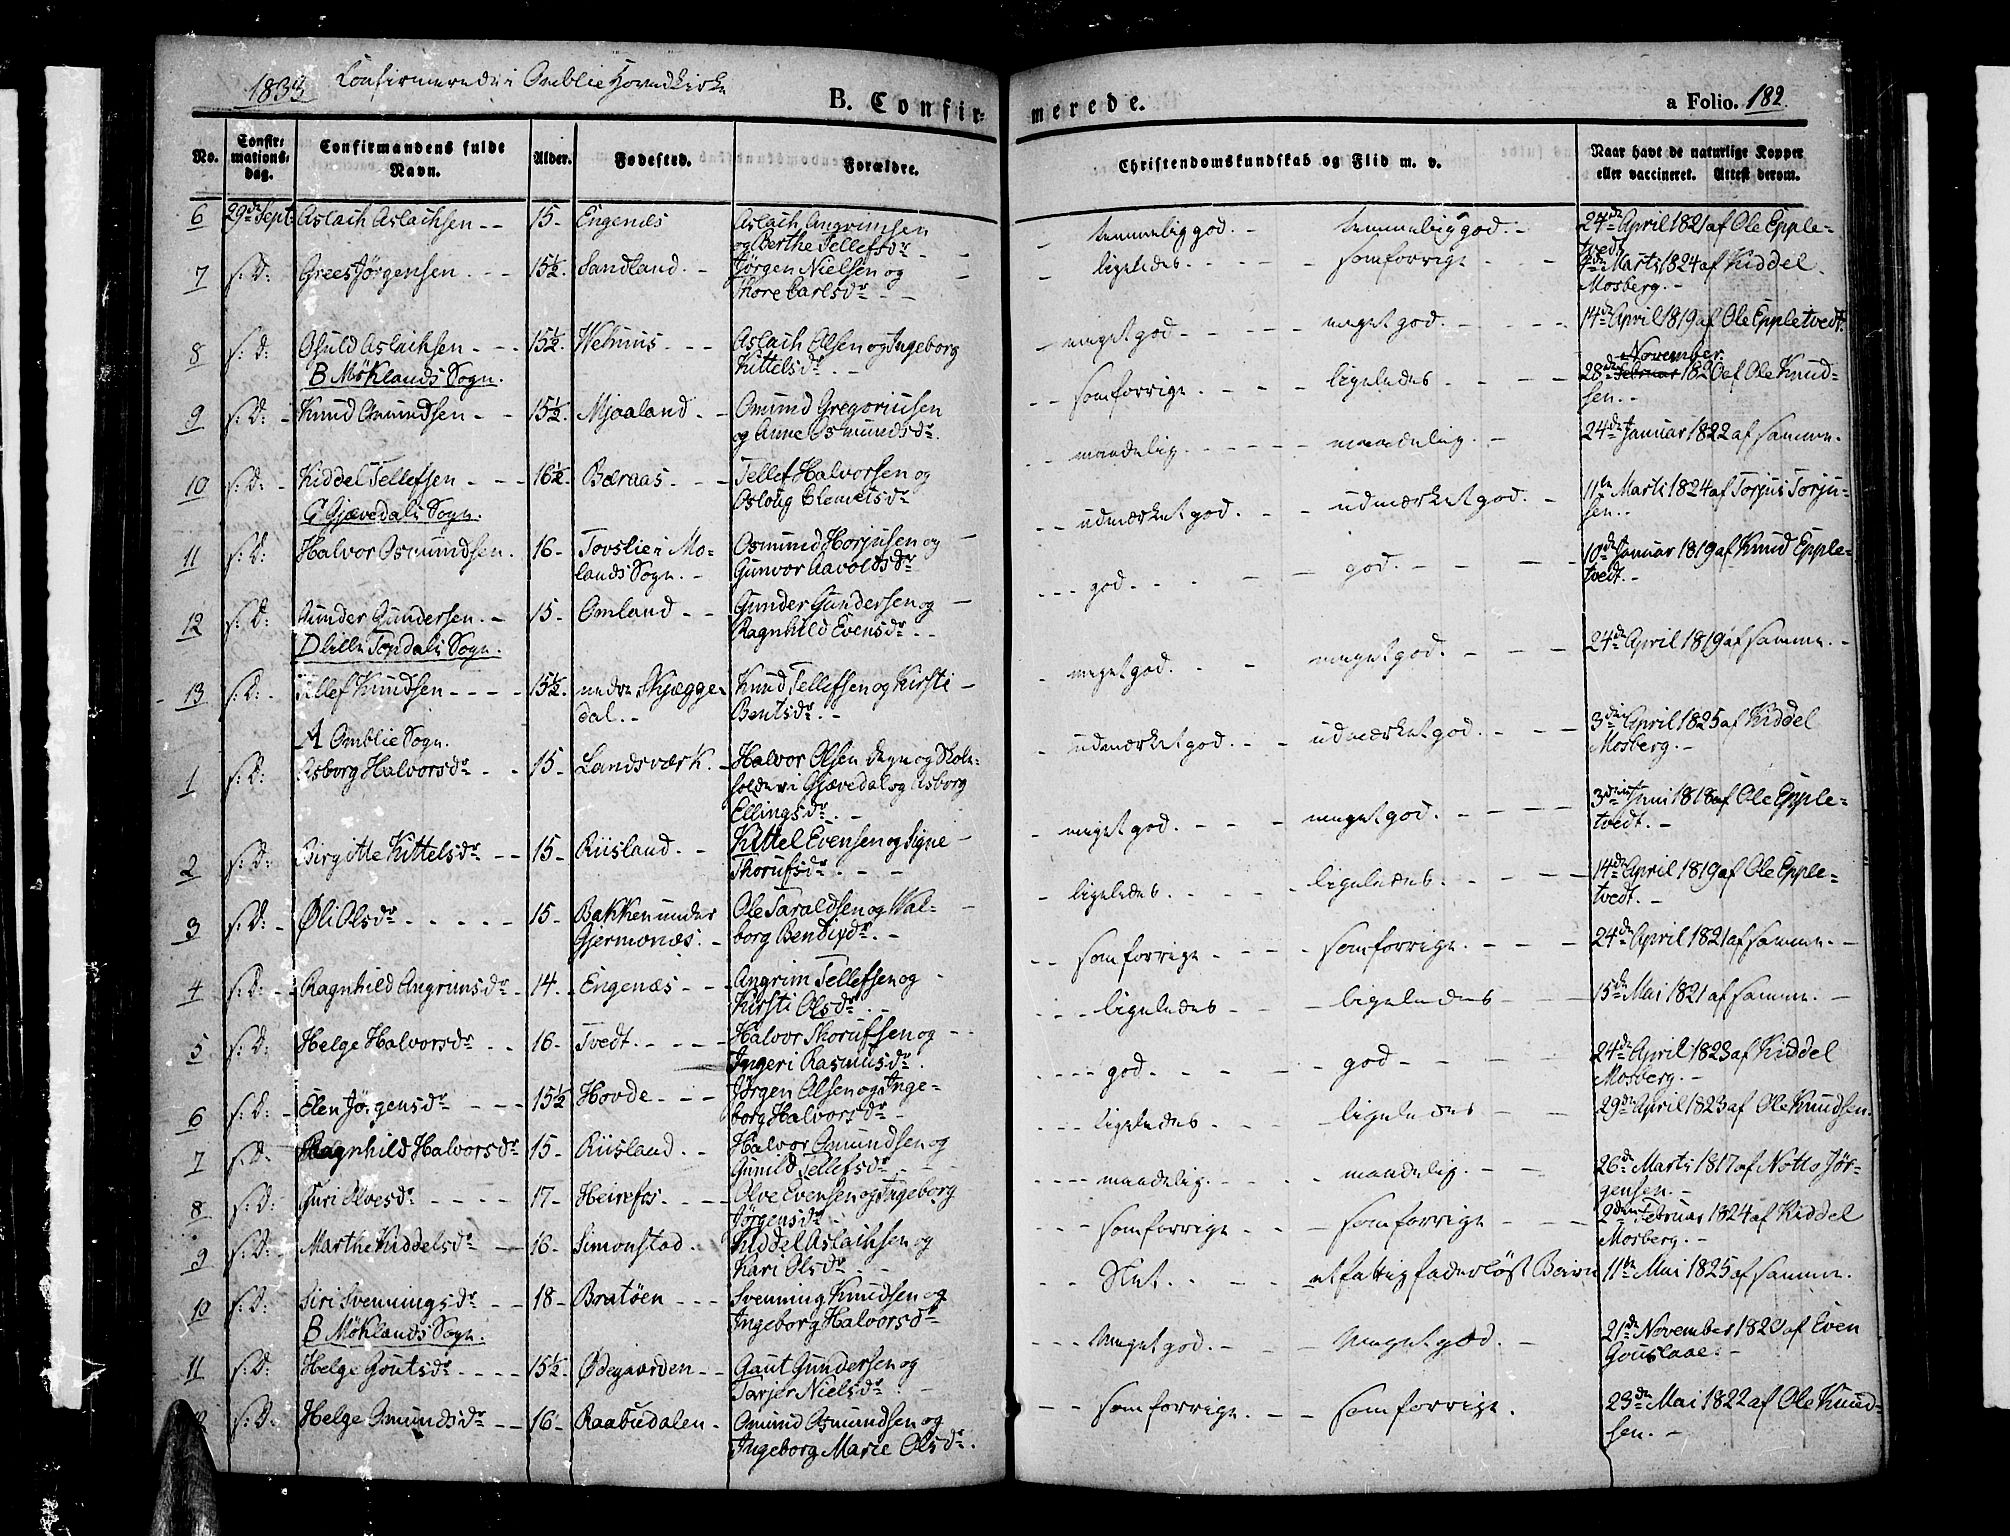 1833 Confirmerede i Omblie Hovedkirke
B. Confirmerede.
a Folio. 182
No. Confirmationsdag. Confirmandens fulde Navn. Alder. Fødested. Forældre. Christendomskundskab og Flid m. v. Naar havt de naturlige Kopper eller vaccineret. Attest derom.
6 29de Sept Aslach Aslachsen -- 15- Engenæs Aslach Angrimsen og Berthe Tellefsdr - temmelig god. - temmelig god. - 24de April 1821 af Ole Eppletvedt
7 s: D: Grees Jørgensen. -- 15½. Sandland. - Jørgen Nielsen og Thore Carlsdr - ligeledes - som forrige - Marti 1824 af Kiddel Mosberg. -
8 s: D: Osuld Aslachsen - - - 15½. Wehuus - - Aslach Olsen og Ingeborg Kittelsdr. - meget god - meget god. - 14de April 1819 af Ole Eppletvedt.
B Møklands Sogn.
9 s: D: - Knud Omundsen - - 15½. Mjaaland. - - Omund Gregoriusen og Anne Osmundsdr. - - som forrige - ligeledes - 28de Februar November 1820 af Ole Knudsen. -
10 s: D: - Kiddel Tellefsen - - - 16½ Bæraas. - - Tellef Halvorsen og Osloug Clemetsdr - - maadelig - maadelig. - 24de Januar 1822 af samme.
G Gjævedals Sogn.
11 s: D: Halvor Osmundsen. 16- Tovslie i Molands Sogn. - Osmund Torjusen og Gunvor Aavoldsdr - - udmærket god. - - udmærket god. - 11te Marti 1824 af Torjus Torjusen.
12 s: D: Gunder Gundersen. - 15- Omland - - Gunder Gundersen og Ragnhild Evensdr. - - - - god. - - god. - - 10de Januar 1819 af Knud Eppletvedt. -
D lille Tovdals Sogn.
13 s: D: - Tellef Knudsen - - - - 15½. nedre Skjæggedal. - Knud Tellefsen og Kirsti Bentsdr. - - meget god. - - meget god. - 24de April 1819 af samme. -
A Omblie Sogn.
1 s: D: Asborg Halvorsdr - - 15- Landsværk. - Halvor Olsen Degn og Skoleholder i Gjævedal og Asborg Ellingsdr. - - udmærket god. - - udmærket god. - 3die April 1825 af Kiddel Mosberg. -
2 s: D: Birgitte Kittelsdr -- 15- Riisland. - Kittel Evensen og Signe Thorufsdr. - - - meget god. - - meget god. - 3die Juni 1818 af Ole Eppletvedt. -
3 s: D: - Øli Olsdr - - - - - 15- Bakken under Gjermonæs. - Ole Taraldsen og Walborg Bendixdr. - - ligeledes - - ligeledes. - 14de April 1819 af Ole Eppletvedt. -
4 s: D: - - Ragnhild Angrimsdr - 14. - Engenæs - - - Angrim Tellefsen og Kirsti Olsdr. - - - som forrige - - som forrige. - 24de April 1821 af samme. -
5 s: D: Helge Halvorsdr. - - 16- Tvedt. - - - - Halvor Thorufsen og Ingeri Rasmusdr. - - - ligeledes - - ligeledes - 15de Mai 1821 af samme. -
6 s: D: - Elen Jørgensdr - - - 15½ Hovde - - - Jørgen Olsen og Ingeborg Halvorsdr - - - - god - - god - 24de April 1823 af Kiddel Mosberg. -
7 s: D: - Ragnhild Halvorsdr 15- Riisland. - Halvor Omundsen og Gunild Tellefsdr - - - - ligeledes - - ligeledes - 29de April 1823 af Ole Knudsen.
8 s: D: Guri Olvesdr - - - - 17- Heirefos. - - - Olve Evensen og Ingeborg Jørgensdr - - - - maadelig. - - maadelig. - 26de Marti 1817 af Notto Jørgensen. -
9 s: D: Marthe Kiddelsdr - 16- Simonstad. - Kiddel Aslachsen og Kari Olsdr - - - - som forrige - - som forrige - 2den Februar 1824 af Kiddel Mosberg. -
10 s: D: Siri Svenningsdr - - 18- Bratøen - - - Svenning Knudsen og Ingeborg Halvorsdr - - Slet. - - et fattig faderløst Barn 11te Mai 1825 af samme.
B Møklands Sogn.
11 s: D: Helge Goutsdr - - - - 15½ Ødegaarden - - Gaut Gundersen og Tarjer Nielsdr. - - - - Meget god. - - Meget god. - 21de November 1820 af Even
s: D: Helge Omundsdr - - 16- Raabudalen - Omund Osmundsen og Ingeborg Marie Olsdr. - - som forrige. - - som forrige. 23de Mai 1822 af Ole Knudsen. -